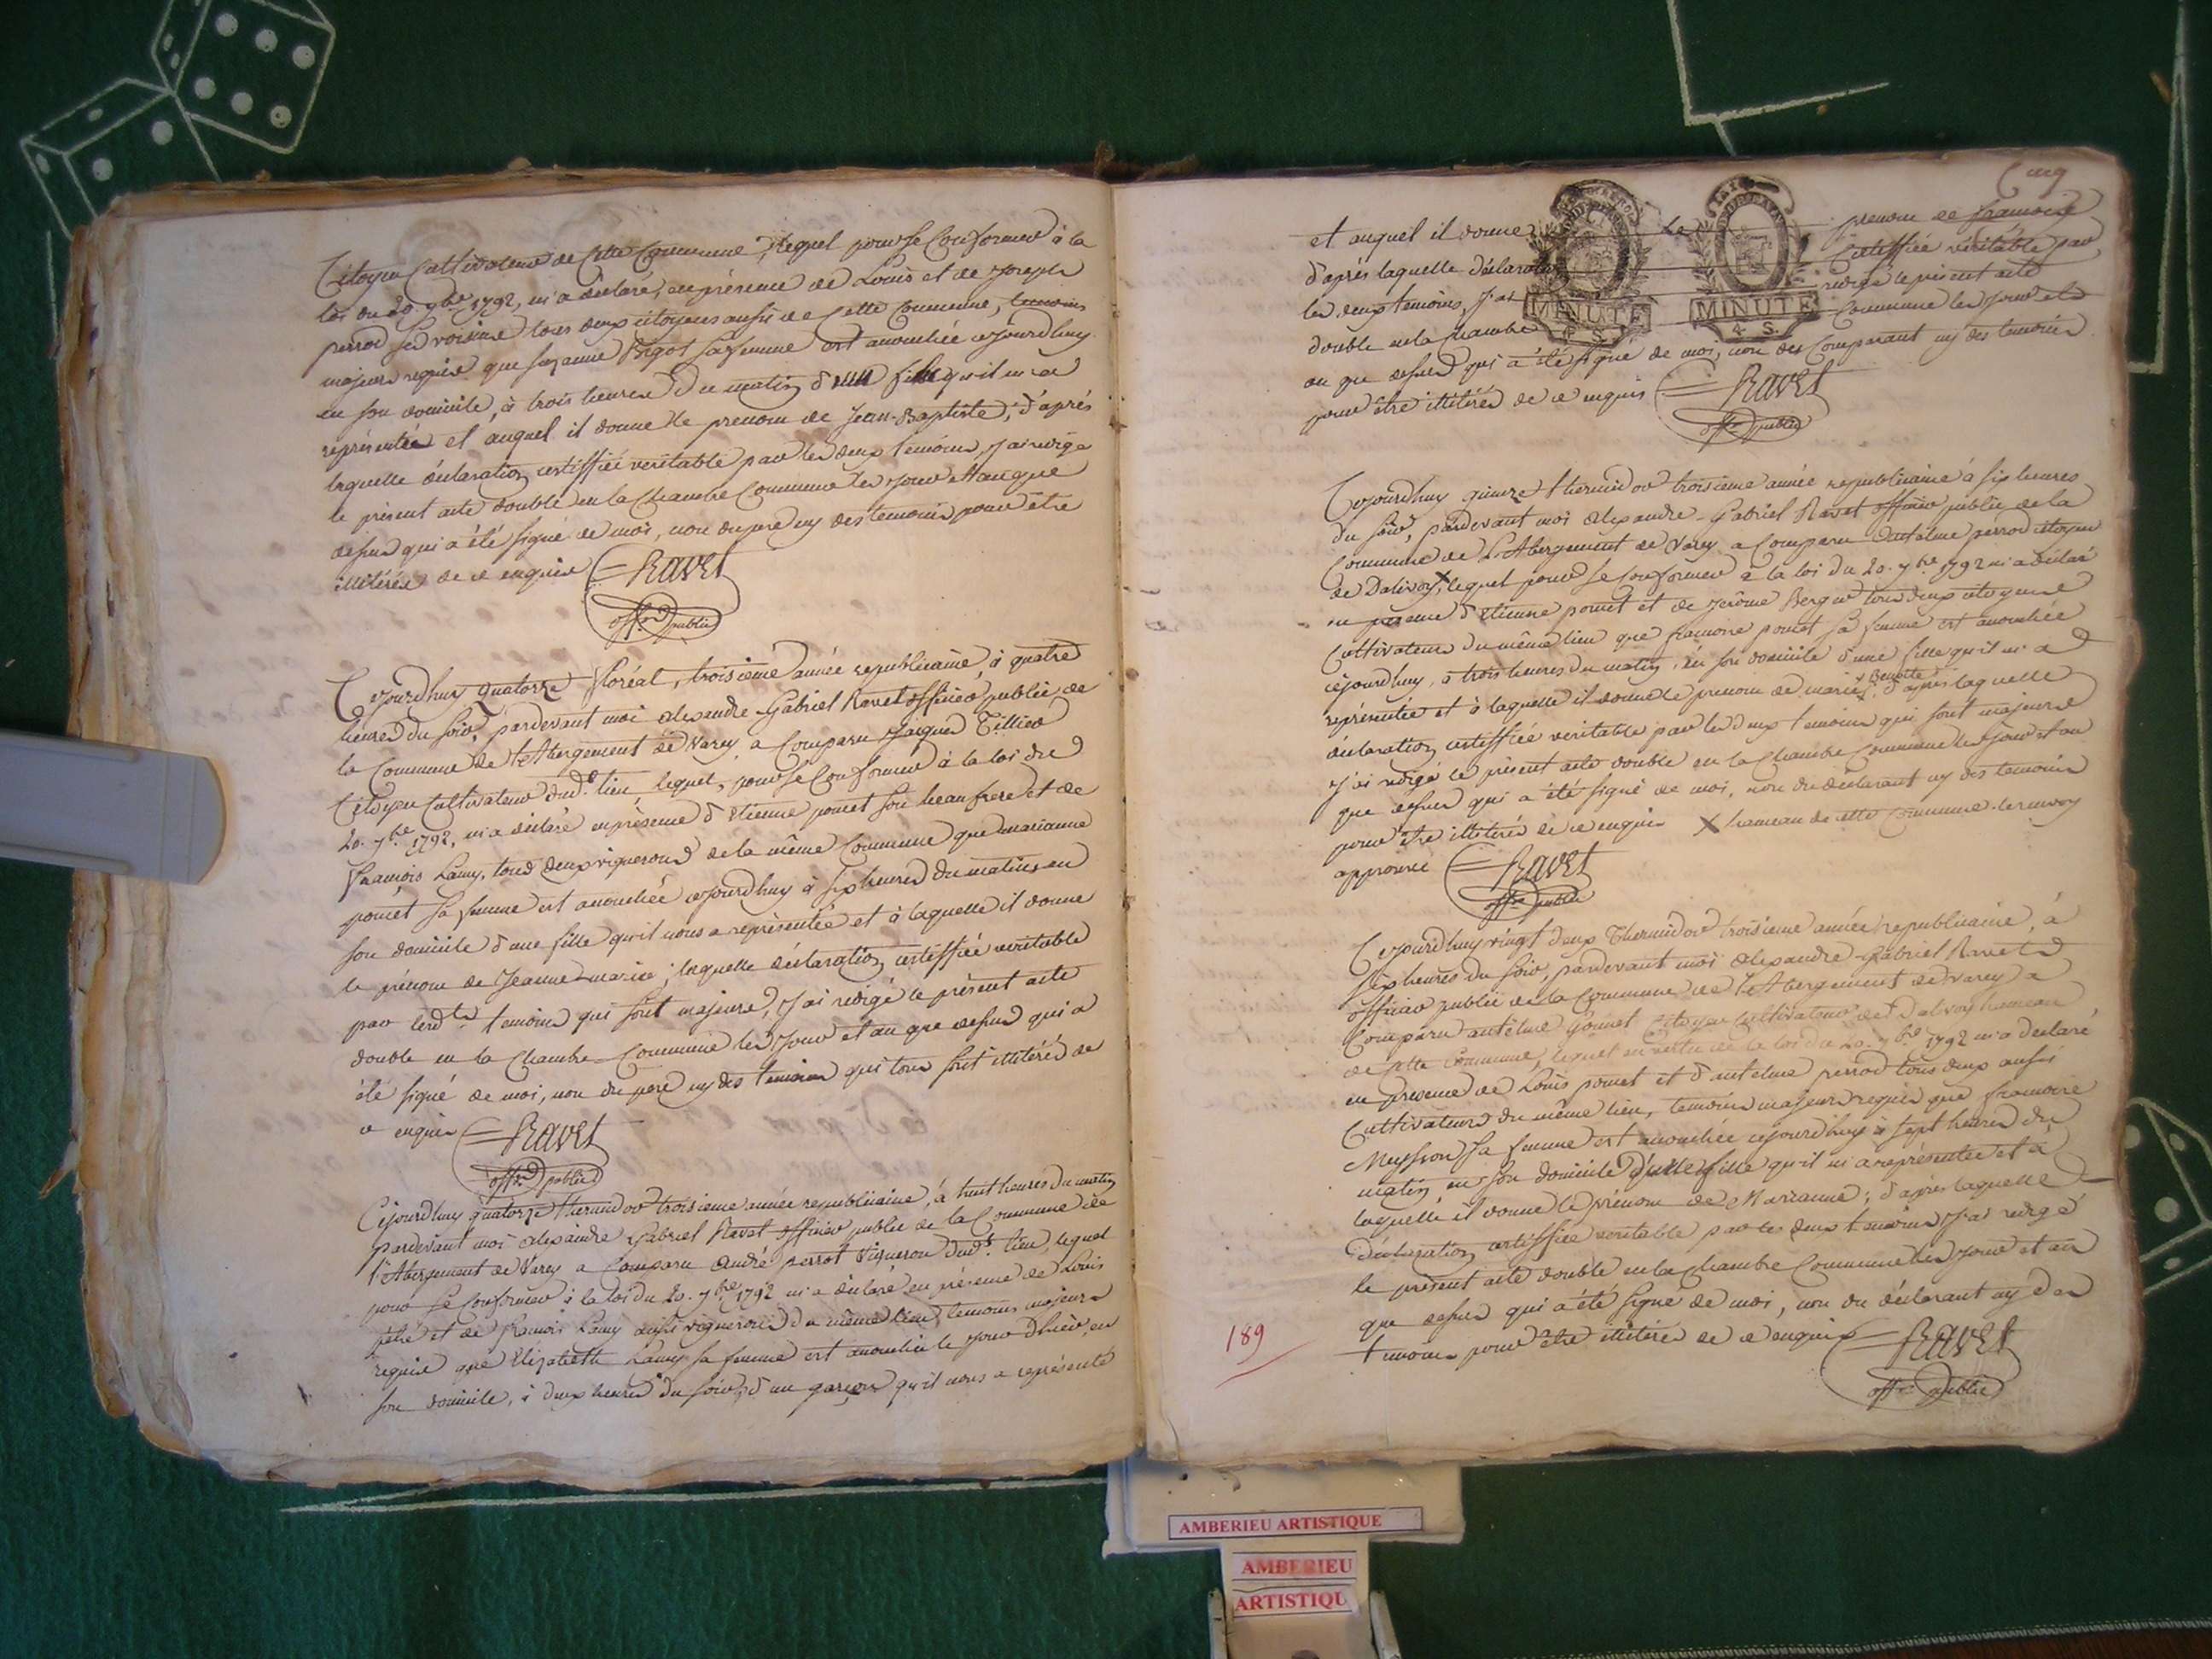 Citoyen Cultivateur de Cette Commune, lequel pour se Conformer à la
loi du 20 7bre 1792, m'a déclaré, en présence de Louis et de Joseph
perrod ses voisins tous deux citoyens aussi de Cette Commune, temoins
majeurs requis que suzanne Bigot sa femme est accouchée cejourdhuy
en son domicile, à trois heures du matin d'un qu'il m'a
représentée et auquel il donne le prenom de Jean-Baptiste; d'après
laquelle déclaration certiffiée veritable par les deux temoins, J'ai redigé
le présent acte double en la Chambre Commune les Jour et an que
dessus qui a été signé de moi, non du pere ny des temoins pour être
illitérés de ce enquis Ravet
offr. public
Cejourdhuy quatorze floréal, troisième année republicaine, à quatre
heures du soir, pardevant moi alexandre-Gabriel Ravet officier public de
la Commune de l'Abergement de Varey a Comparu Jacques Tillier
Citoyen Cultivateur dud. lieu lequel, pour se Conformer à la loi du
20. 7bre. 1792, m'a déclaré en présence d'Etienne pomet son beau frere et de
françois Lamy, tous deux vignerons de la même Commune que marianne
pomet sa femme est accouchée cejourdhuy à six heures du matin, en
son domicile d'une fille qu'il nous a représentée et à laquelle il donne
le prénom de Jeanne-marie; laquelle déclaration certiffiée veritable
par lesdts. temoins qui sont majeurs, J'ai redigé le présent acte
double en la Chambre-Commune les Jour et an que dessus qui a
été signé de moi, non du pere ny des temoins qui tous sont illitérés de
ce enquis Ravet
offr. public
Cejourdhuy quatorze thermidor troisieme année republicaine, à huit heures du matin
pardevant moi alexandre Gabriel Ravet officier public de la Commune de
l'Abergement de Varey a Comparu andré perrot vigneron dud. lieu, lequel
pour se Conformer à la loi du 20. 7bre 1792 m'a déclaré en présence de Louis
et de françois Lamy aussi vignerons du même lieu, temoins majeurs
requis que Elizabeth Lamy sa femme est accouchée le Jour d'hier, en
son domicile, à deux heures du soir, d'un garçon qu'il nous a représenté
Cinq
et auquel il donne le prenom de françois
d'après laquelle déclaration Certiffiée véritable par
les deux temoins, J'ai redigé le présent acte
double en la Chambre Commune les Jour et
an que dessus qui a été signé de moi, non des Comparant ny des temoins
pour être illitérés de ce enquis Ravet
offr. public
MINUTE
4. S.
MINUTE
4. S.
Cejourdhuy quinze thermidor troisieme année republicaine à six heures
du soir, pardevant moi alexandre-Gabriel Ravet officier public de la
Commune de L'Abergement de Varey a Comparu Antelme perrod citoyen
de Dalivoy X, lequel pour se Conformer à la loi du 20. 7bre 1792 m'a déclaré
en présence d'Etienne pomet et de Jerôme Berger tous deux citoyens
Cultivateurs du même lieu que françoise pomet sa femme est accouchée
cejourdhuy, à trois heures du matin, en son domicile d'une fille qu'il m'a
représentée et à laquelle il donne le prenom de marie Benoite; d'après laquelle
déclaration certiffiée veritable par les deux temoins qui sont majeurs
J'ai redigé le présent acte double en la Chambre Commune les Jour et an
que dessus qui a été signé de moi, non du déclarant ny des temoins
pour être illitérés de ce enquis X hameau de cette Commune le renvoy
approuvé Ravet
offr. public
Cejourdhuy vingt deux Thermidor troisieme année republicaine, à
six heures du soir, pardevant moi alexandre-Gabriel Ravet
officier public de la Commune de l'Abergement de Varey a
Comparu antelme Gonnet Citoyen Cultivateur de Dalivoy hameau
de Cette Commune, lequel en vertu de la loi du 20. 7bre 1792 m'a declaré
en presence de Louis pomet et d'antelme perrod tous deux aussi
Cultivateurs du même lieu, temoins majeurs requis que françoise
Meysson sa femme est accouchée cejourdhuy à sept heures du
matin, en son domicile d'une fille qu'il m'a représentée et à
laquelle il donne le prénom de Marianne; d'après laquelle
déclaration certiffiée veritable par les deux temoins J'ai redigé
le présent acte double en la Chambre Commune les Jour et an
que dessus qui a été signé de moi, non du déclarant ny des
temoins pour être illitérés de ce enquis Ravet
offr. public
189
AMBERIEU ARTISTIQUE
AMBERIEU
ARTISTIQU